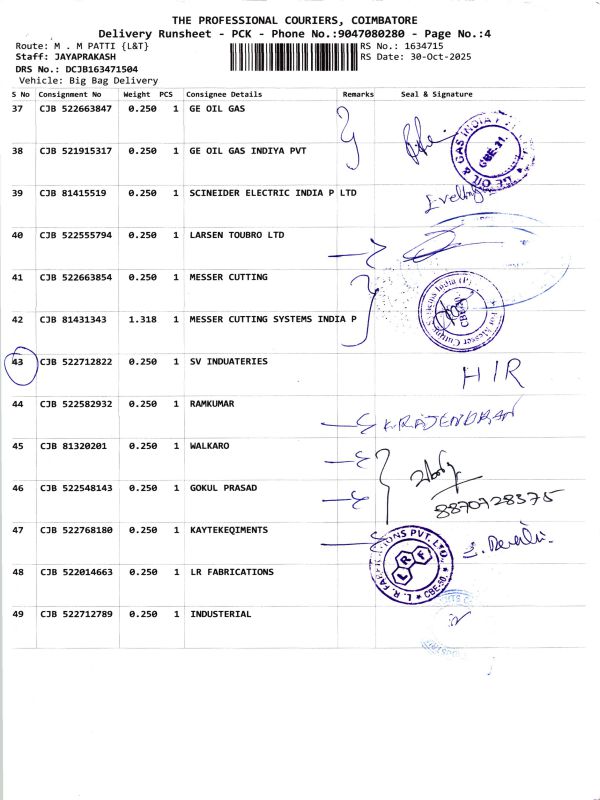 THE PROFESSIONAL COURIERS, COIMBATORE
Delivery Runsheet - PCK - Phone No.:9047080280 - Page No.:4
Route: M . M PATTI {L&T} RS No.: 1634715
Staff: JAYAPRAKASH RS Date: 30-Oct-2025
DRS No.: DCJB163471504
Vehicle: Big Bag Delivery
S No Consignment No Weight PCS Consignee Details Remarks Seal & Signature
37 CJB 522663847 0.250 1 GE OIL GAS
38 CJB 521915317 0.250 1 GE OIL GAS INDIYA PVT
GE OIL & GAS INDIA PVT
CBE-31
39 CJB 81415519 0.250 1 SCINEIDER ELECTRIC INDIA P LTD
40 CJB 522555794 0.250 1 LARSEN TOUBRO LTD
41 CJB 522663854 0.250 1 MESSER CUTTING
42 CJB 81431343 1.318 1 MESSER CUTTING SYSTEMS INDIA P
For Messer Cutting Systems India (P)
43 CJB 522712822 0.250 1 SV INDUATERIES
HIR
44 CJB 522582932 0.250 1 RAMKUMAR
K.RAJENDRAN
45 CJB 81320201 0.250 1 WALKARO
46 CJB 522548143 0.250 1 GOKUL PRASAD
8870928375
47 CJB 522768180 0.250 1 KAYTEKEQIMENTS
48 CJB 522014663 0.250 1 LR FABRICATIONS
L. R. FABRICATIONS PVT. LTD.
LRF
CBE-50
49 CJB 522712789 0.250 1 INDUSTERIAL